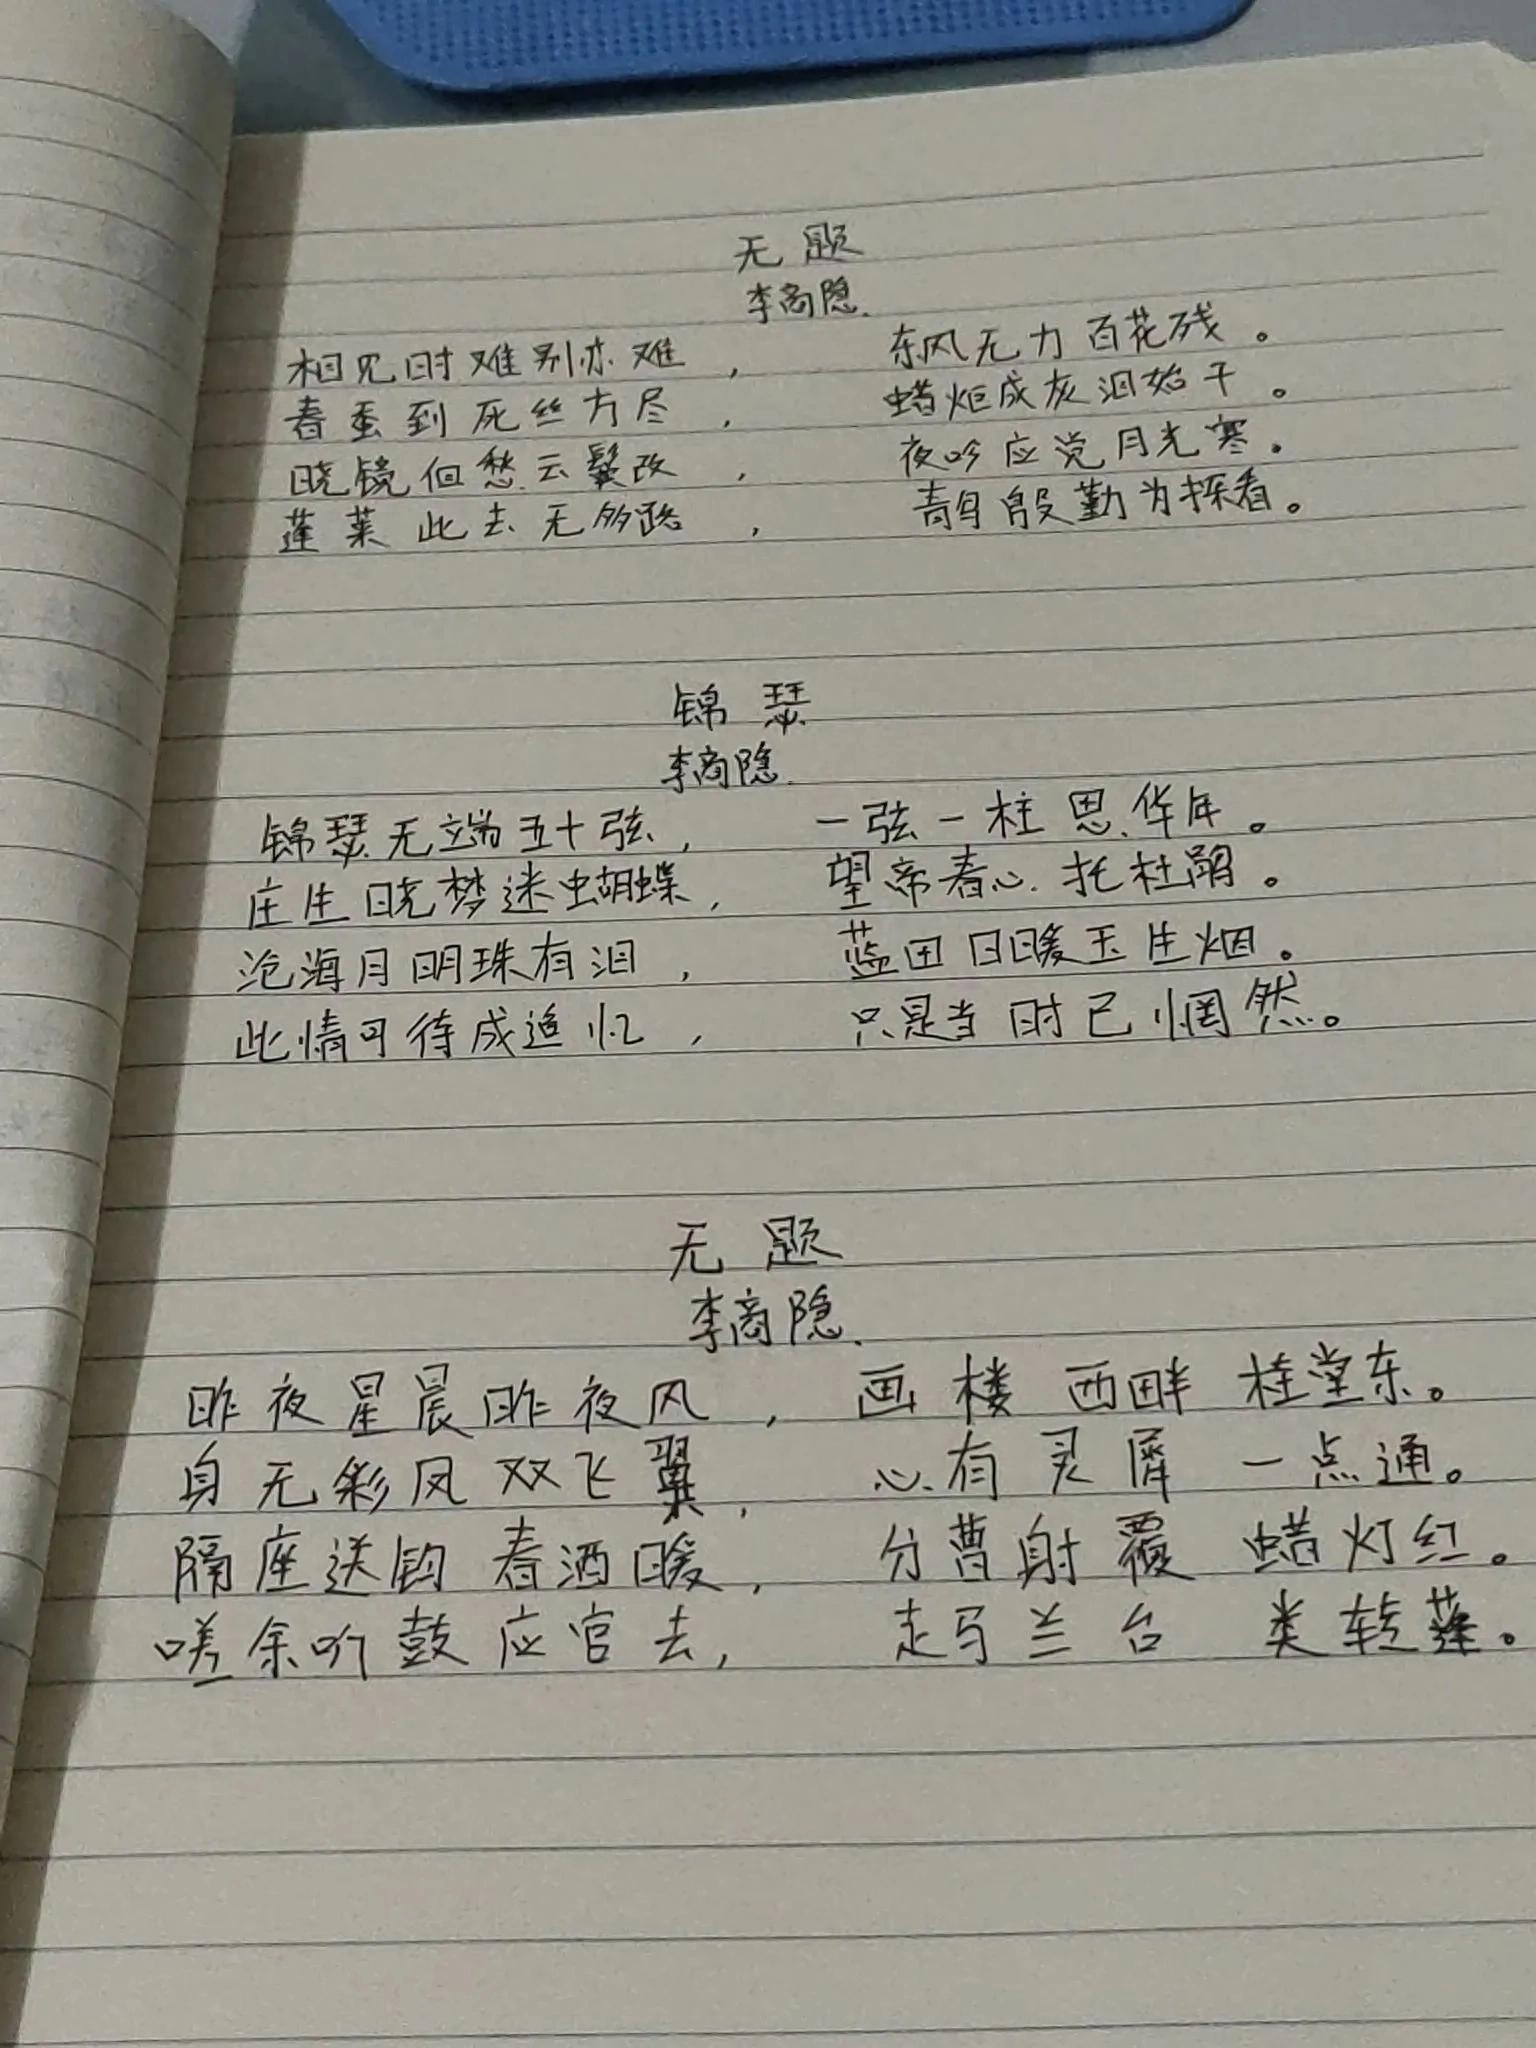 无题
李商隐.
相见时难别亦难，东风无力百花残。
春蚕到死丝方尽，蜡炬成灰泪始干。
晓镜但愁云鬓改，夜吟应觉月光寒。
蓬莱此去无多路，青鸟殷勤为探看。
锦瑟
李商隐.
锦瑟无端五十弦，一弦一柱思华年。
庄生晓梦迷蝴蝶，望帝春心托杜鹃。
沧海月明珠有泪，蓝田日暖玉生烟。
此情可待成追忆，只是当时已惘然。
无题
李商隐.
昨夜星晨昨夜风，画楼西畔桂堂东。
身无彩凤双飞翼，心有灵犀一点通。
隔座送钩春酒暖，分曹射覆蜡灯红。
嗟余听鼓应官去，走马兰台类转蓬。